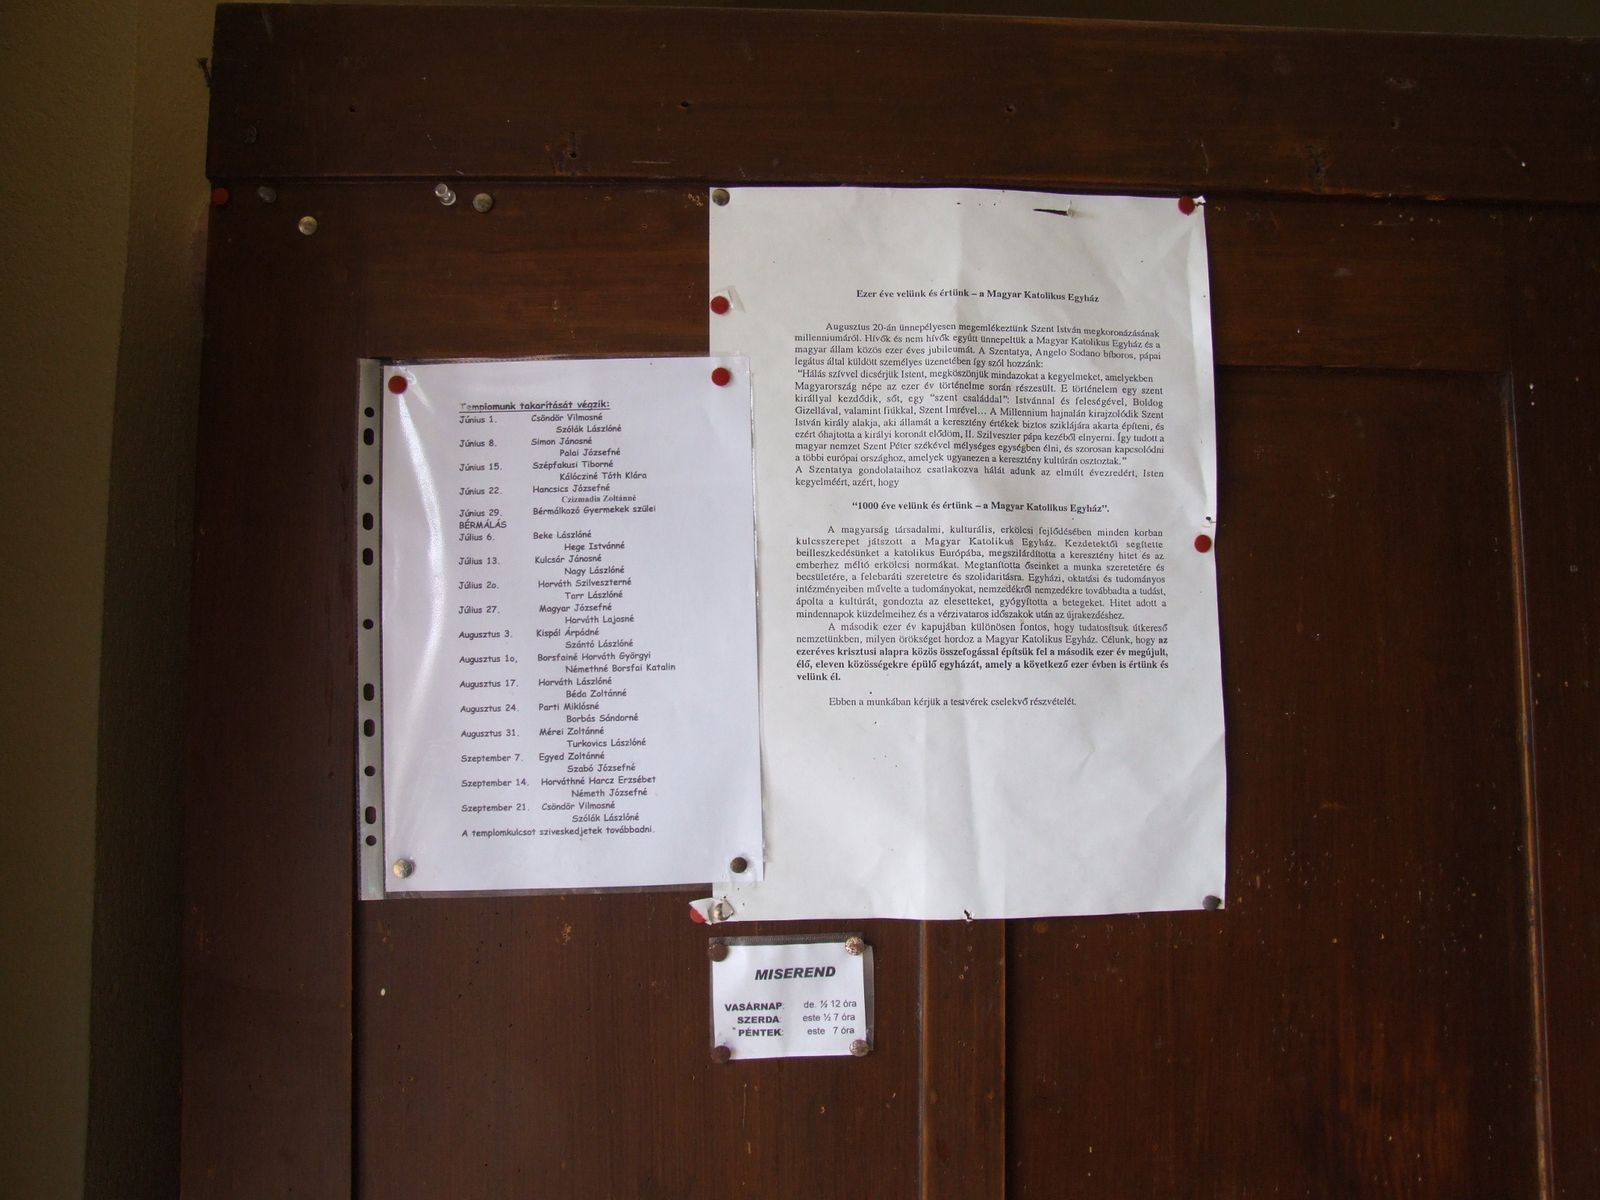 Templomunk takarítását végzik:
Június 1. Csöndör Vilmosné
Szólák Lászlóné
Június 8. Simon Jánosné
Palai Józsefné
Június 15. Szépfakusi Tiborné
Kálócziné Tóth Klára
Június 22. Hancsics Józsefné
Czizmadia Zoltánné
Június 29. Bérmálkozó Gyermekek szülei
BÉRMÁLÁS
Július 6. Beke Lászlóné
Hege Istvánné
Július 13. Kulcsár Jánosné
Nagy Lászlóné
Július 2o. Horváth Szilveszterné
Tarr Lászlóné
Július 27. Magyar Józsefné
Horváth Lajosné
Augusztus 3. Kispál Árpádné
Szántó Lászlóné
Augusztus 1o, Borsfainé Horváth Györgyi
Némethné Borsfai Katalin
Augusztus 17. Horváth Lászlóné
Béda Zoltánné
Augusztus 24. Parti Miklósné
Borbás Sándorné
Augusztus 31. Mérei Zoltánné
Turkovics Lászlóné
Szeptember 7. Egyed Zoltánné
Szabó Józsefné
Szeptember 14. Horváthné Harcz Erzsébet
Németh Józsefné
Szeptember 21. Csöndör Vilmosné
Szólák Lászlóné
A templomkulcsot sziveskedjetek továbbadni.
Ezer éve velünk és értünk – a Magyar Katolikus Egyház
Augusztus 20-án ünnepélyesen megemlékeztünk Szent István megkoronázásának
millenniumáról. Hívők és nem hívők együtt ünnepeltük a Magyar Katolikus Egyház és a
magyar állam közös ezer éves jubileumát. A Szentatya, Angelo Sodano bíboros, pápai
legátus által küldött személyes üzenetében így szól hozzánk:
"Hálás szívvel dicsérjük Istent, megköszönjük mindazokat a kegyelmeket, amelyekben
Magyarország népe az ezer év történelme során részesült. E történelem egy szent
királlyal kezdődik, sőt, egy "szent családdal": Istvánnal és feleségével, Boldog
Gizellával, valamint fiúkkal, Szent Imrével... A Millennium hajnalán kirajzolódik Szent
István király alakja, aki államát a keresztény értékek biztos sziklájára akarta építeni, és
ezért óhajtotta a királyi koronát elődöm, II. Szilveszter pápa kezéből elnyerni. Így tudott a
magyar nemzet Szent Péter székével mélységes egységben élni, és szorosan kapcsolódni
a többi európai országhoz, amelyek ugyanezen a keresztény kultúrán osztoztak."
A Szentatya gondolataihoz csatlakozva hálát adunk az elmúlt évezredért, Isten
kegyelméért, azért, hogy
"1000 éve velünk és értünk – a Magyar Katolikus Egyház".
A magyarság társadalmi, kulturális, erkölcsi fejlődésében minden korban
kulcsszerepet játszott a Magyar Katolikus Egyház. Kezdetektől segítette
beilleszkedésünket a katolikus Európába, megszilárdította a keresztény hitet és az
emberhez méltó erkölcsi normákat. Megtanította őseinket a munka szeretetére és
becsületére, a felebaráti szeretetre és szolidaritásra. Egyházi, oktatási és tudományos
intézményeiben művelte a tudományokat, nemzedékről nemzedékre továbbadta a tudást,
ápolta a kultúrát, gondozta az elesetteket, gyógyította a betegeket. Hitet adott a
mindennapok küzdelmeihez és a vérzivataros időszakok után az újrakezdéshez.
A második ezer év kapujában különösen fontos, hogy tudatosítsuk útkereső
nemzetünkben, milyen örökséget hordoz a Magyar Katolikus Egyház. Célunk, hogy az
ezeréves krisztusi alapra közös összefogással építsük fel a második ezer év megújult,
élő, eleven közösségekre épülő egyházát, amely a következő ezer évben is értünk és
velünk él.
Ebben a munkában kérjük a testvérek cselekvő részvételét.
MISEREND
VASÁRNAP: de. ½ 12 óra
SZERDA: este ½ 7 óra
PÉNTEK: este 7 óra